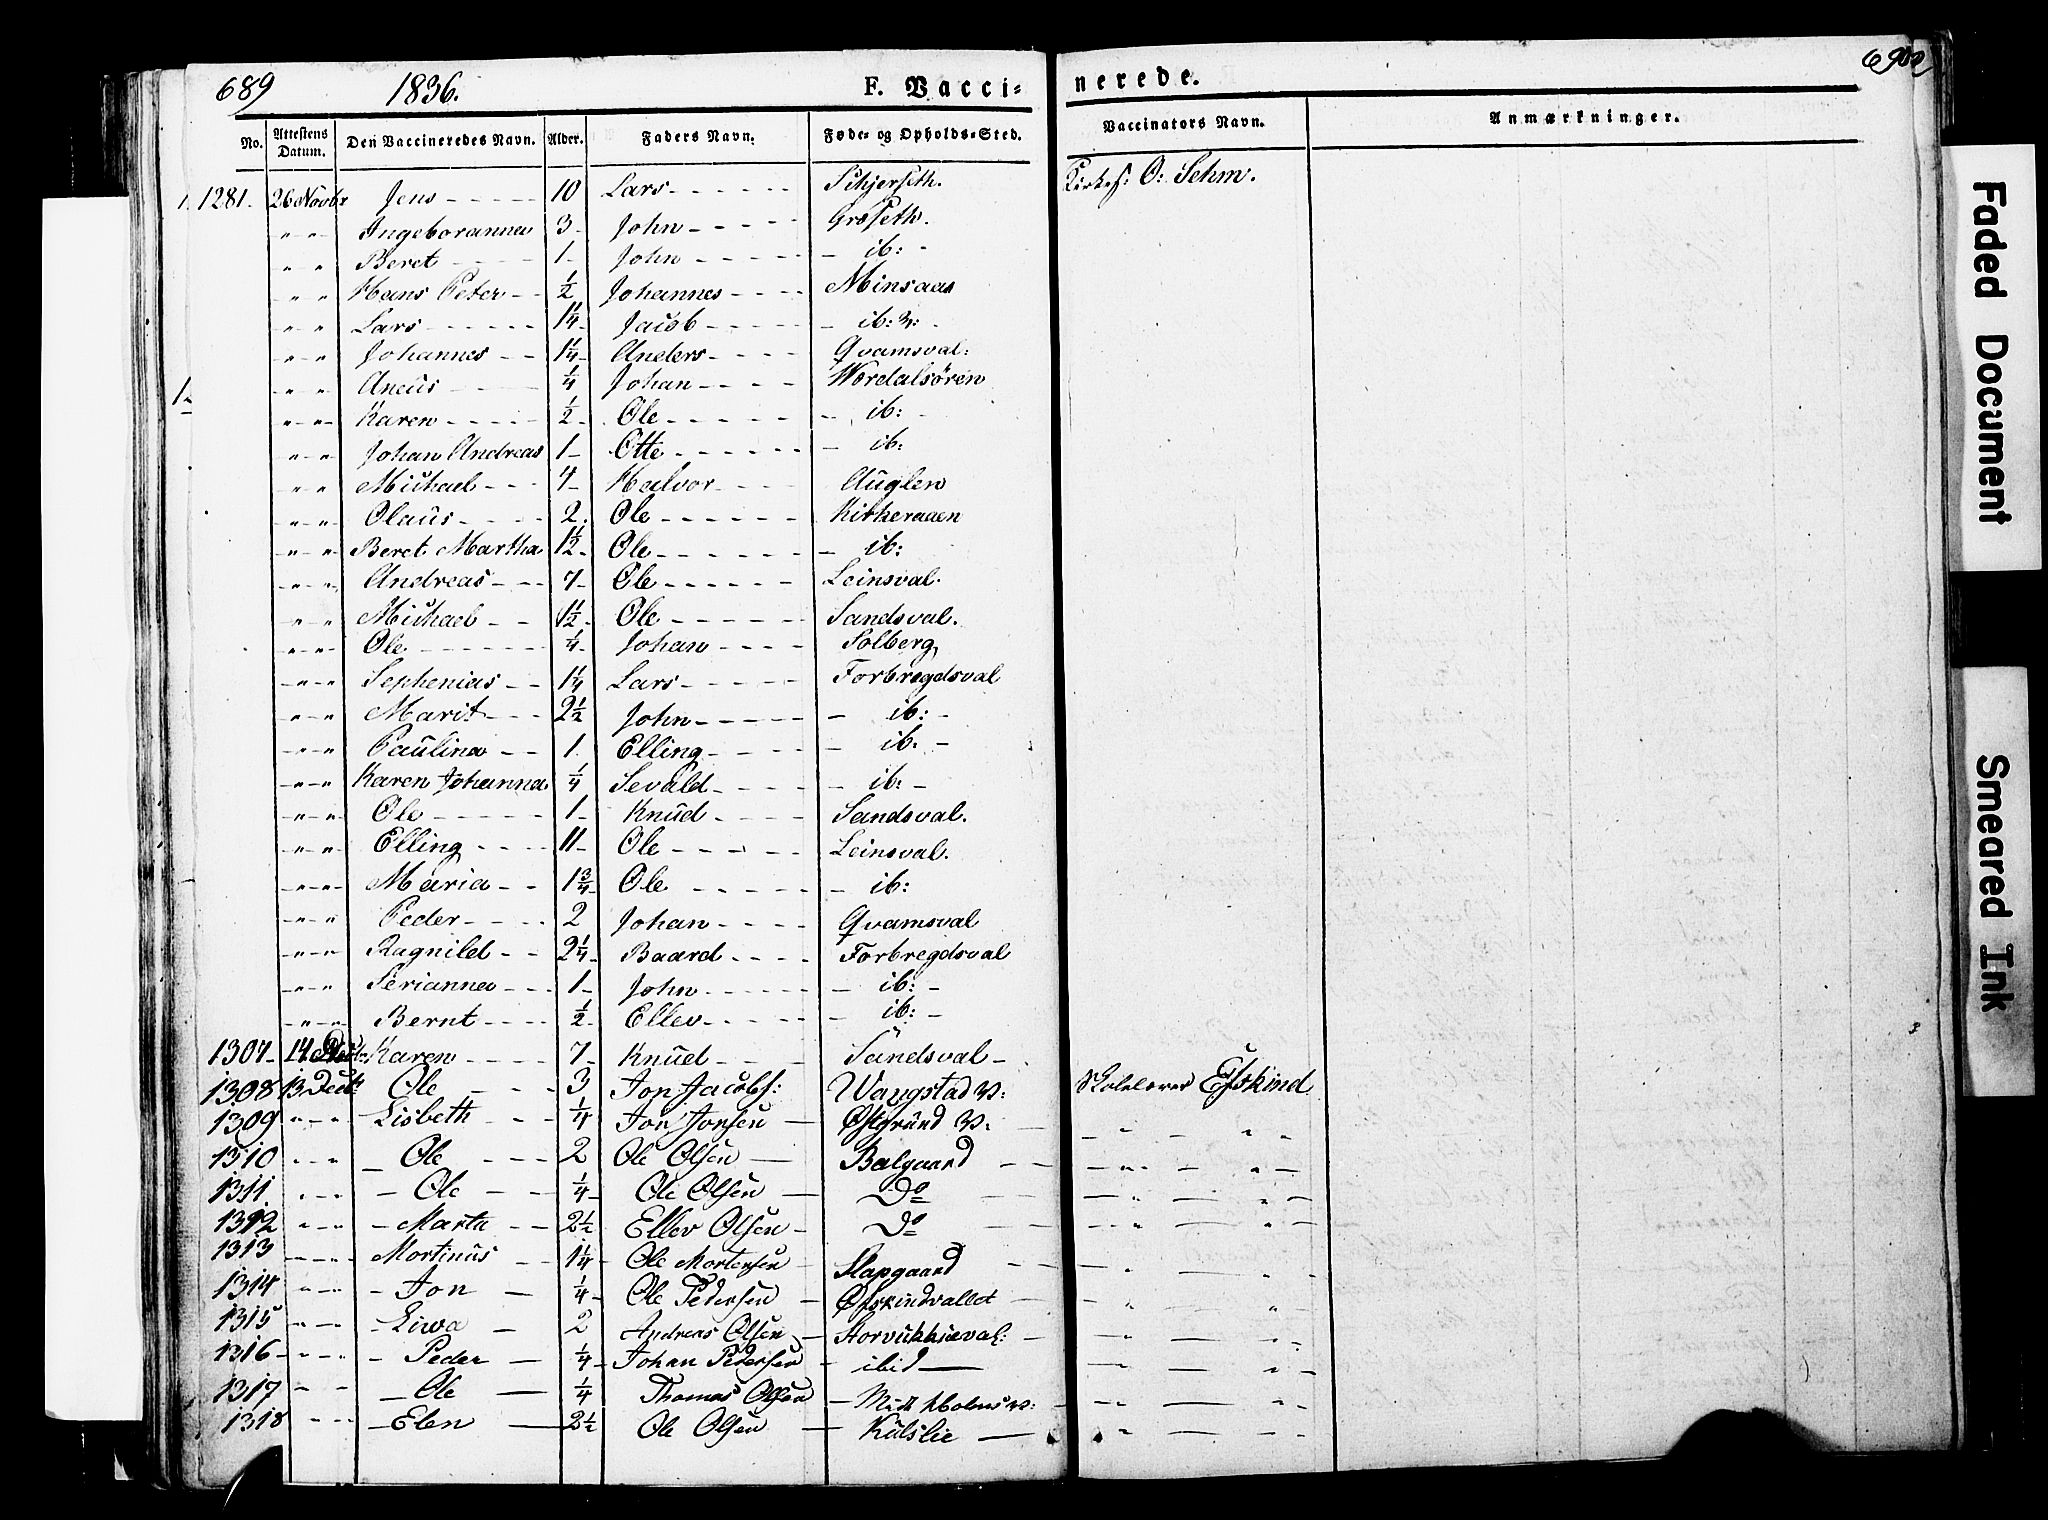 689 1836. F. Vacci-
nerede. 690
No. Attestens Datum. Den Vaccineredes Navn. Alder. Faders Navn. Føde- og Opholds-Sted. Vaccinators Navn. Anmærkninger.
1281. 26 Novbr Jens - - - - - 10 Lars - - - - - Kirkes: O: Sehm.
" " Ingeboranna 3 - John - - - - - Groseth.
" " Beret - - - - 1 - John - - - - - - ib: -
" " Hans Peter - - 1/2 - Johannes - - - - Minsaas
" " Lars - - - - - - 1 1/4 - Jacob - - - - - - ib:
" " Johannes - - 1 1/4 - Anders - - - - - Qvamsval:
" " - - - - 1/4 Johan - - - - Værdalsören
" " Karen - - - - 1/2 - Ole - - - - - - - ib: -
" " Johan Andreas 1 - Otte - - - - - - - ib:
" " Michael - - - 4 - Halvor - - - - Auglen
" " Olaus - - - - 2. Ole - - - - - - Kirkeraaen
" " Beret Martha 1 1/2 - Ole - - - - - - - ib:
" " Andreas - - - 7 - Ole - - - - - - Leinsval.
" " Michael - - 1 1/2 - Ole - - - - - - Sandsval.
" " Ole - - - - - - 1/4 - Johan - - - - Solberg
" " Sephenias - - 1 1/4 Lars - - - - - Forbregdsval
" " Marit - - - 2 1/2 John - - - - - - ib: -
" " Paulina - - 1. Elling - - - - - ib: -
" " Karen Johanna 1/4 Sevald - - - - - ib: -
" " Ole - - - - - 1 - Knud - - - - - Sandsval.
" " Elling - - - - 11 - Ole - - - - - Leinsval.
" " Maria - - 1 3/4 - Ole - - - - - - ib:
" " Peder - - - - 2 Johan - - - - Qvamsval
" " Ragnild - - 2 1/4 - Baard - - - - Forbregdsval
" " Serianna - - - 1 - John - - - - - - ib: -
" " Bernt - - - - 1/2 - Ellev - - - - - ib: -
1307 - 14 Karen - - - - 7 - Knud - - - - Sandsval -
1308 13 Decbr Ole - - - 3 Jon Jacobs: Vangstad v: Skolelærer Efskind
1309 " " Lisbeth - - - 1/4 Jon Jonsen — Østgrund v: " " "
1310 " " - Ole - - - 2 Ole Olsen — Balgaard - - " " "
1311 " " - Ole - - 1/4 - Ole Olsen — Do - - " " "
1312 " " - Marta - - 2 1/2 Ellev Olsen - Do - - " " "
1313 - - - Mortinus - 1 1/4 - Ole Mortensen - Slapgaard - - " " "
1314 " " - Jon - 1/4 - Ole Pedersen - Øfskindvallet - " "
1315 " " - Liwa - 2 Andreas Olsen - -
1316 - " " - Peder — 1/4 - Johan Pedersen - ibid — " "
1317 " " - Ole — 1/4 Thomas Olsen - Midt Holmsv: " "
1318 " " - Elen — 2 1/2 Ole Olsen — Kulslie — " "
Faded Document
Smeared Ink